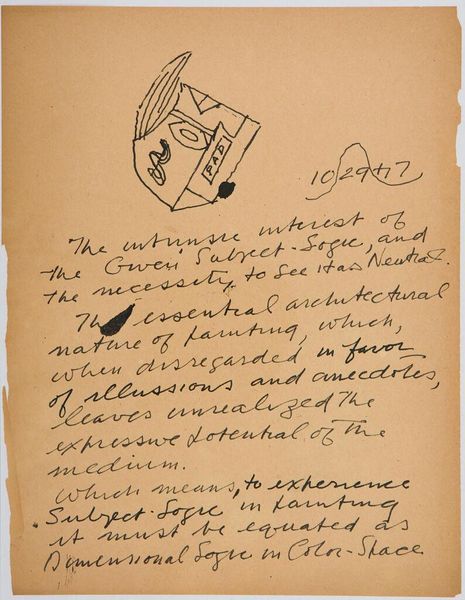 PAD
10/29/47
The intrinsic interest of
the Given Subject-Logic, and
the necessity to See it as Neutral.
The essential architectural
nature of painting, which,
when disregarded in favor
of illussions and anecdotes,
leaves unrealized the
expressive potential of the
medium.
which means, to experience
Subject-Logic in painting
it must be equated as
Dimensional Logic in Color-Space